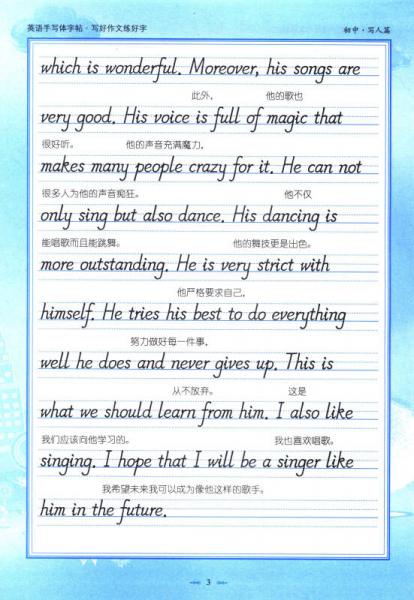 英语手写体字帖·写好作文练好字 初中·写人篇
which is wonderful. Moreover, his songs are
此外， 他的歌也
very good. His voice is full of magic that
很好听。 他的声音充满魔力，
makes many people crazy for it. He can not
很多人为他的声音痴狂。 他不仅
only sing but also dance. His dancing is
能唱歌而且能跳舞。 他的舞技更是出色。
more outstanding. He is very strict with
他严格要求自己，
himself. He tries his best to do everything
努力做好每一件事，
well he does and never gives up. This is
从不放弃。 这是
what we should learn from him. I also like
我们应该向他学习的。 我也喜欢唱歌。
singing. I hope that I will be a singer like
我希望未来我可以成为像他这样的歌手。
him in the future.
3